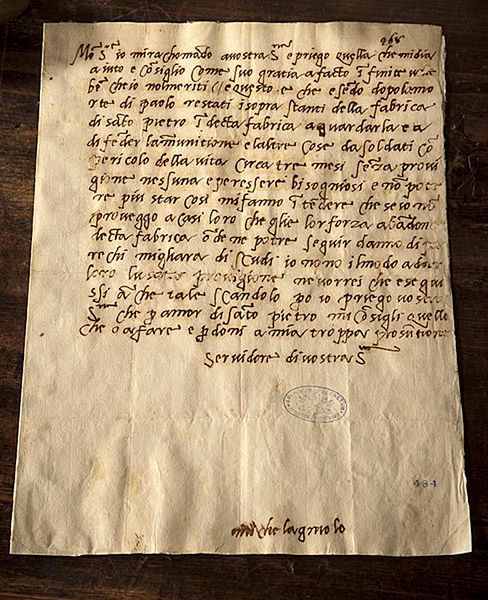 268
Mo S io mi rachomādo a vostra S e priego quella che mi dia
aiuto e cōsiglio come suo gratia a facto īfinite
bē che io nol meriti e questo e che esēdo dopo la mo
rte di paolo restati i sopra stanti della fabrica
di sāto pietro ī decta fabrica a guardarla e a
difēder la munitione e laltre cose da soldati cō
pericolo della vita circa tre mesi sēza provi
gione nessuna e per essere bisogniosi e nō pote
re piu star cosi mi fanno ītēdere che se io nō
proveggo a casi loro che gli e lor forza abādone
decta fabrica ōde ne potre seguir danno di
rechi migliara di scudi io nono il modo a dar
loro provigione ne vorrei che
ssi ā che tale scandolo pō io priego vostra
S che p amor di sāto pietro mi cōsigli quello
che o a fare e pdoni a mia troppa prosūtione
Servidore di vostra S
484
michelagniolo